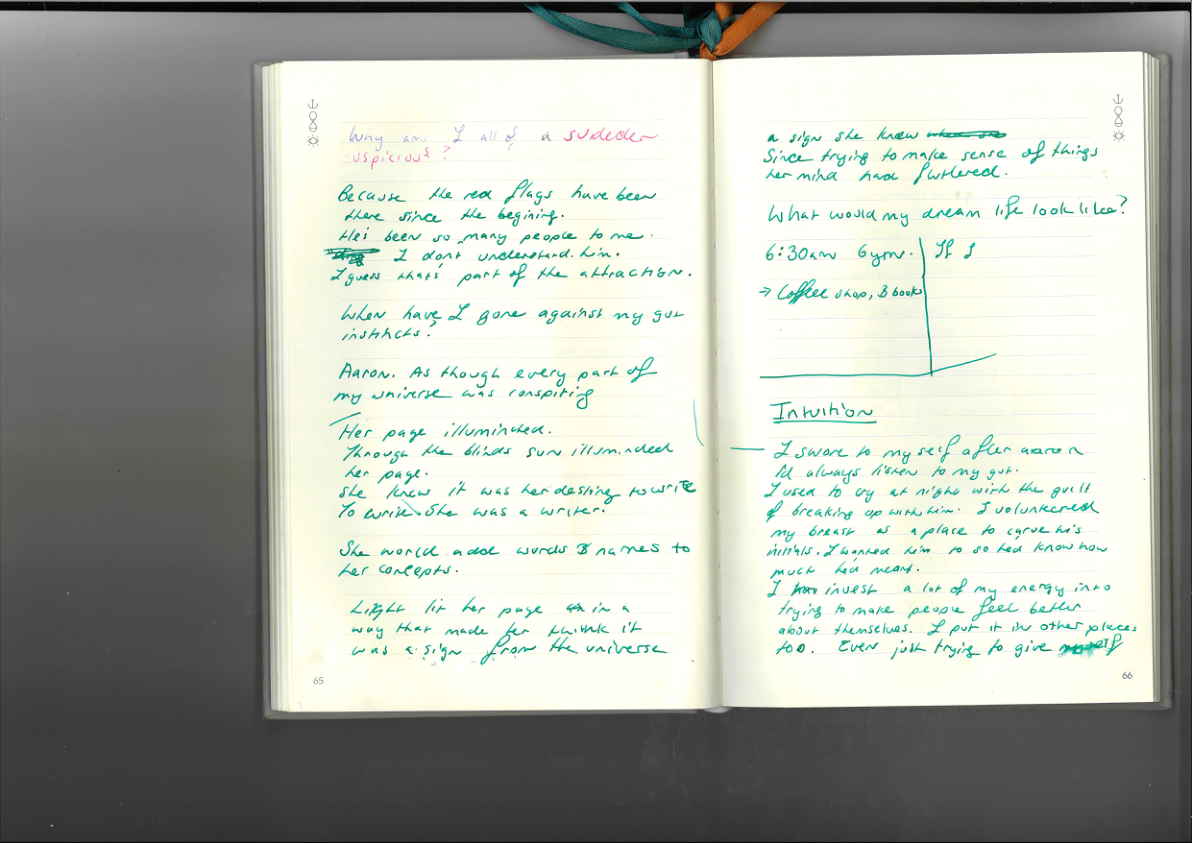 Why am I all of a sudeden
suspicious?
Because the red flags have been
there since the begining.
He's been so many people to me.
I don't understand him.
I guess that's part of the attraction.
When have I gone against my gut
instincts?
Aaron. As though every part of
my universe was conspiring
Her page illuminated.
Through the blinds sun illuminated
her page.
She knew it was her destiny to write
To write. She was a writer.
She would add words & names to
her concepts.
Light lit her page in a
way that made her think it
was a sign from the universe
65
a sign she knew
Since trying to make sense of things
her mind had fluttered.
What would my dream life look like?
6:30am Gym. If I
→ Coffee shop, & book
Intuition
I swore to myself after aaron
I'd always listen to my gut.
I used to cry at night with the guilt
of breaking up with him. I volunteered
my breast as a place to carve his
initials. I wanted him to so he'd know how
much he'd meant.
I invest a lot of my energy into
trying to make people feel better
about themselves. I put it in other places
too. Even just trying to give
66